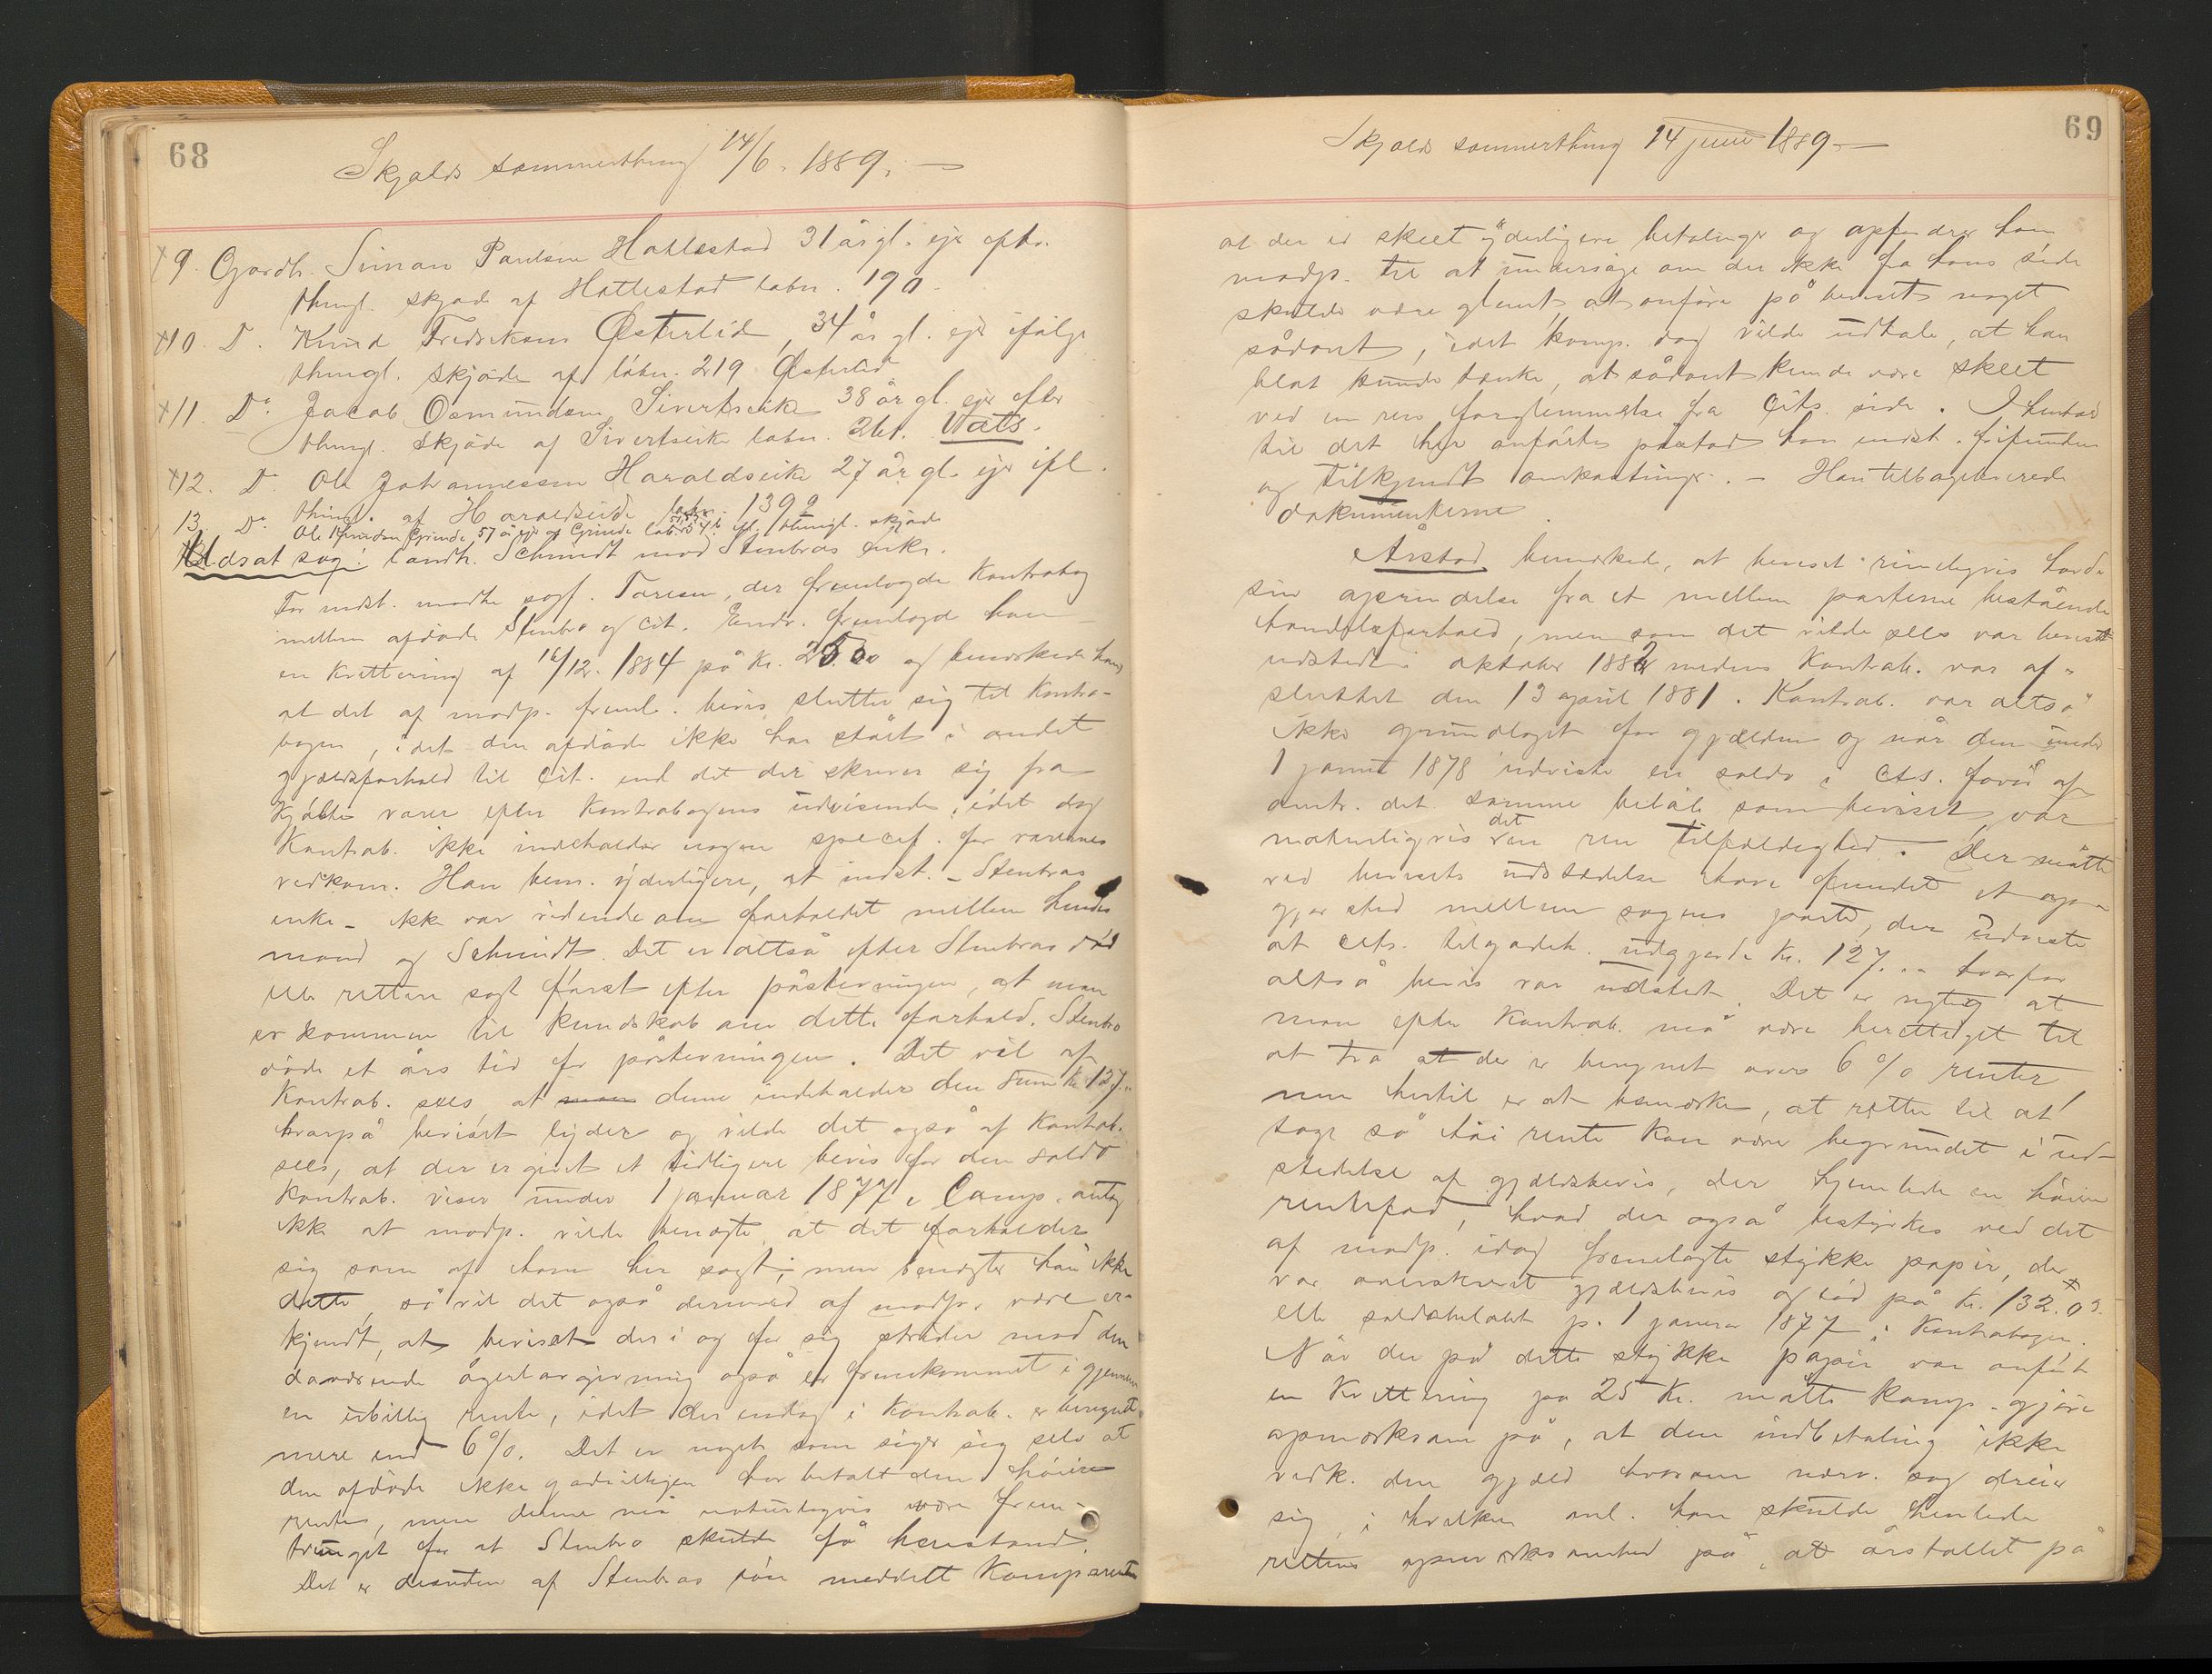 68
Skjolds sommerthing 14/6. 1889. —
9. Gaardb. Simon Paulsen Hallestad 31 år gl. ejer efter
thingl. skjøde af Hattestad løbnr. 190.
10. Do Knud Fredriksens Østerlid, 34 år gl. ejer ifølge
thingl. skjøde af løbnr. 219 Østerlid
11. Do Jacob Osmundsen Sivertseike 38 år gl. ejer efter
thingl. skjøde af Sivertseike løbnr. 261. Wats.
12. Do Ole Johannessen Haraldseide 27 år gl. ejer ifl.
thingl. af Haraldseide løbnr. 139 a
13. Do Ole Knudsen Grinde, 57 år ejer af Grinde løbnr. 54 b ifl. thingl. skjøde
Udsat sag: landh. Schmidt mod Stenbros enke.
For indst. mødte sagf. Toresen, der fremlagde Kontrabog
mellem afdøde Stenbro og Cit. Endv. fremlagde han
en kvittering af 16/12. 1884 på kr. 25.00 og bemærkede han
at det af modp. freml. bevis slutter sig til Kontra-
bogen, idet den afdøde ikke har stået i andet
gjældsforhold til Cit. end det der skriver sig fra
kjøbte varer efter Kontrabogens udvisende, idet dog
Kontrab. ikke indeholder nogen specif. for varernes
vedkom. Han bem. yderligere, at indst. - Stenbros
enke - ikke var vidende om forholdet mellem hendes
mand og Schmidt. Det er altså efter Stenbros død
eller rettere sagt først efter påstevningen, at man
er kommen til kundskab om dette forhold. Stenbro
døde et års tid før påstevningen. Det vil af
Kontrab. sees at man denne indeholder den sum kr. 127..
hvorpå beviset lyder og vilde det også af Kontrab.
sees, at der er givet et tidligere bevis for den saldo
Kontrab. viser under 1 januar 1877. Comp. antog
ikke at modp. vilde benægte, at det forholder
sig som af ham her sagt; men benægter han ikke
dette, så vil det også dermed af modp. være er-
kjendt, at beviset der i og for sig strider mod den
daværende ågerlovgivning også er fremkommet i gjennem
en ubillig rente, idet der endog i Kontrab. er beregnet
mere end 6%. Det er noget som siger sig selv at
den afdøde ikke godvilligen har betalt den høiere
rente, men denne må naturligvis være frem-
tvunget for at Stenbro skulde få henstand.
Det er desuden af Stenbros søn meddelt Komparenten
69
Skjolds sommerthing 14 juni 1889. —
at der er skeet yderligere betalinger og opfordrer han
modp. til at undersøge om der ikke fra hans side
skulde være glemt at anføre på beviset noget
sådant, idet komp. dog vilde udtale, at han
blot kunde tænke, at sådant kunde være skeet
ved en ren forglemmelse fra Cits. side. I henhold
til det her anførte påstod han indst. frifunden
og tilkjendt omkostninger. — Han tilbageleverede
dokumenterne.
Årstad bemærkede, at beviset rimeligvis havde
sin oprindelse fra et mellem parterne bestående
handelsforhold, men som det vilde sees var beviset
udstedt i oktober 1882 medens Kontrab. var af-
sluttet den 13 april 1881. Kontrab. var altså
ikke grundlaget for gjælden og når den under
1 januar 1878 udviste en saldo i Cts. favør af
omtr. det samme beløb som beviset, var
naturligvis det en ren tilfældighed. Der måtte
ved bevisets udstædelse have fundet et op-
gjør sted mellem sagens parter, der udviste
at Cits. tilgodeh. udgjorde kr. 127... hvorfor
altså bevis var udstedt. Det er rigtig at
man efter Kontrab. må være berettiget til
at tro at der er beregnet over 6% renter
men hertil er at bemærke, at retten til at
tage så høi rente kan være begrundet i ud-
stedelse af gjældsbevis, der hjemlede en høiere
rentefod, hvad der også bestyrkes ved det
af modp. idag fremlagte stykke papir, der
var overskrevet gjældsbevis og lød på kr. 132.09
eller saldobeløbet p. 1 januar 1877 i Kontrabogen.
Når der på dette stykke papir var anført
en kvittering på 25 kr. måtte komp. gjøre
opmærksom på, at den indbetaling ikke
vedk. den gjæld hvorom nærv. sag dreier
sig, i hvilken anl. han skulde henlede
rettens opmærksomhed på, at årstallet på